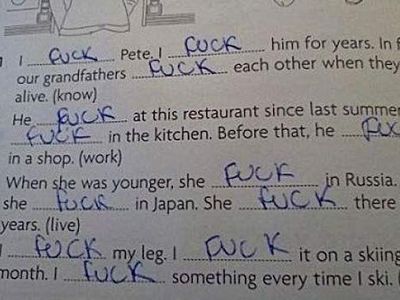 I FUCK Pete. I FUCK him for years. In f
our grandfathers FUCK each other when they
alive. (know)
He FUCK at this restaurant since last summer
FUCK in the kitchen. Before that, he FUC
in a shop. (work)
When she was younger, she FUCK in Russia.
she FUCK in Japan. She FUCK there
years. (live)
I FUCK my leg. I FUCK it on a skiing
month. I FUCK something every time I ski. (